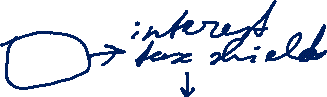 interest
tax shield